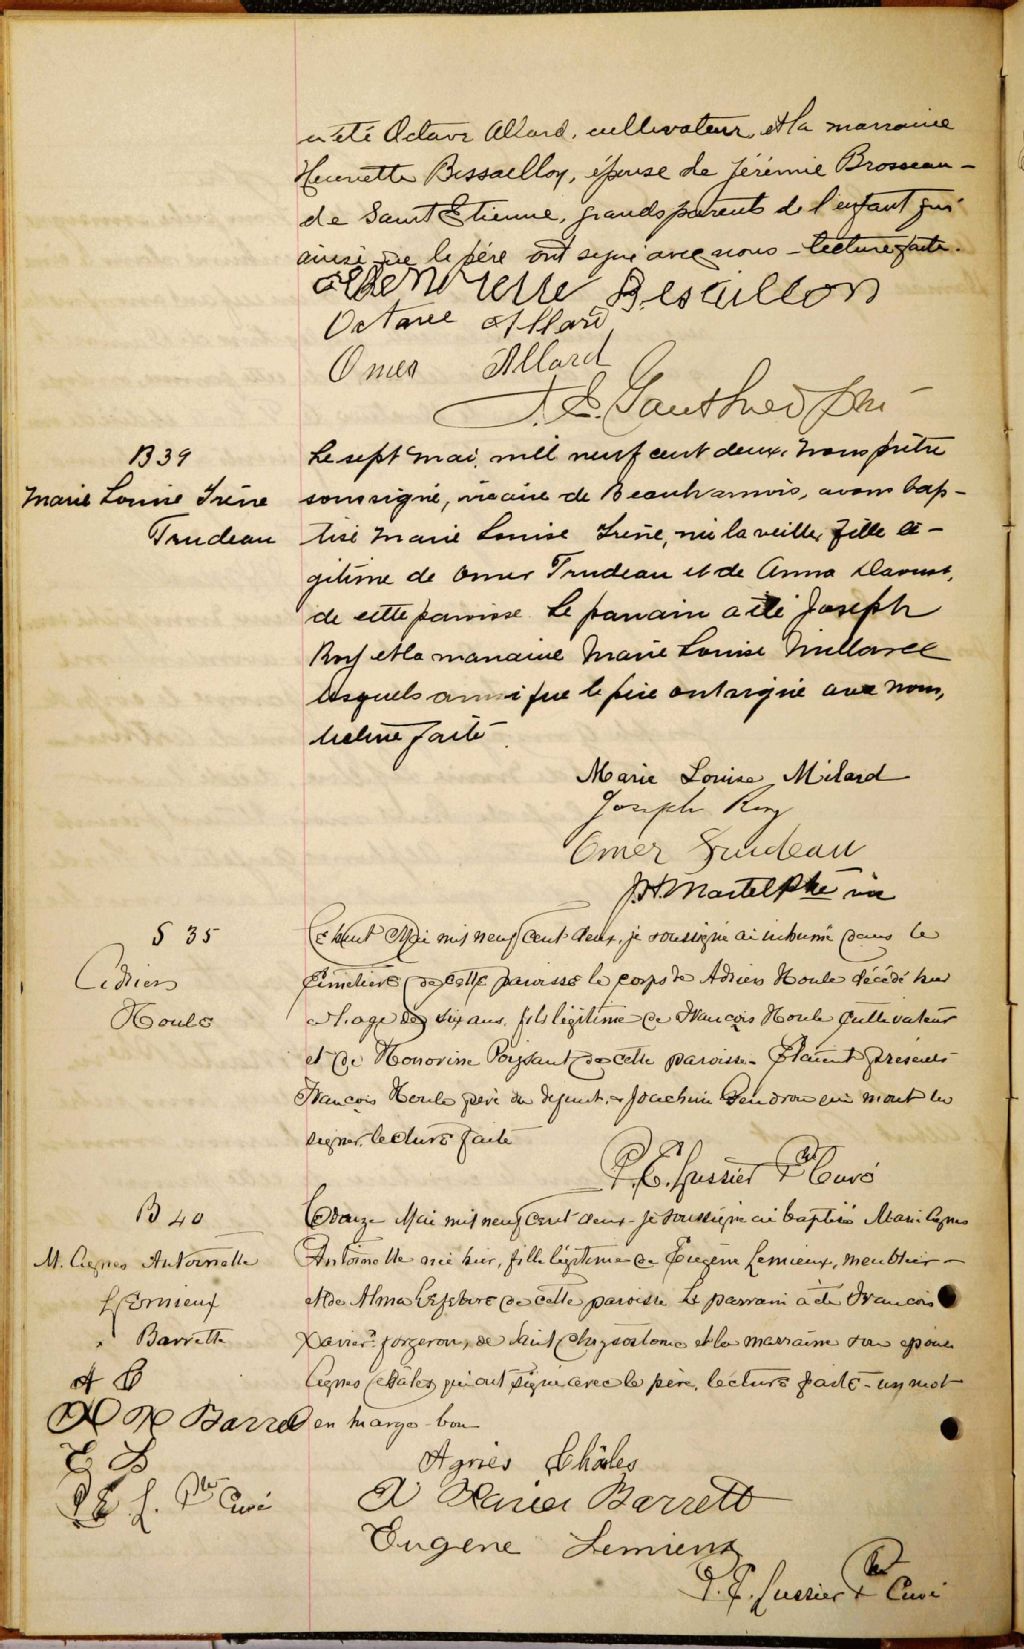 a été Octave Allard, cultivateur, et la marraine
Henriette Bessaellon, épouse de Jérémie Brosseau -
de Saint Etienne, grands parents de l'enfant qui
ainsi que le père ont signé avec nous - lecture faite.
Henriette Besaillon
Octave Allard
Omer Allard
J. E. Gauthier ptre
B 39
Marie Louise Irène
Trudeau
Le sept mai, mil neuf cent deux, nous prêtre
soussigné, vicaire de Beauharnois, avons bap-
tisé Marie Louise Irène, née la veille, fille lé-
gitime de Omer Trudeau et de Anna Daoust,
de cette paroisse. Le parrain a été Joseph
Roy et la marraine Marie Louise
lesquels ainsi que le père ont signé avec nous,
lecture faite.
Marie Louise Milard
Joseph Roy
Omer Trudeau
J. A. Martel Ptre vic
S 35
Adrien
Houle
Le huit Mai mil neuf cent deux, je soussigné ai inhumé dans le
cimetière de cette paroisse le corps de Adrien Houle décédé hier
à l'age de six ans, fils légitime de François Houle cultivateur
et de Honorine Poissant de cette paroisse - Etaient présents
François Houle père du défunt, & Joachim Gendron qui n'ont su
signer, lecture faite
P. E. Lussier Ptre Curé
B 40
M. Agnes Antoinette
Lemieux
Barrette
A C
X X Barrett
E L
P. E. L. Ptre Curé
Le onze Mai mil neuf cent deux je soussigné ai baptisé Marie Agnes
Antoinette née hier, fille légitime de Eugène Lemieux, meublier -
et de Alma Lefebvre de cette paroisse Le parrain a été François
Xavier forgeron, de Saint Chrysostome et la marraine son épouse
Agnes Châles qui ont signé avec le père, lecture faite - un mot
en marge bon
Agnès Châles
X Xavier Barrett
Eugene Lemieux
P. E. Lussier Ptre Curé